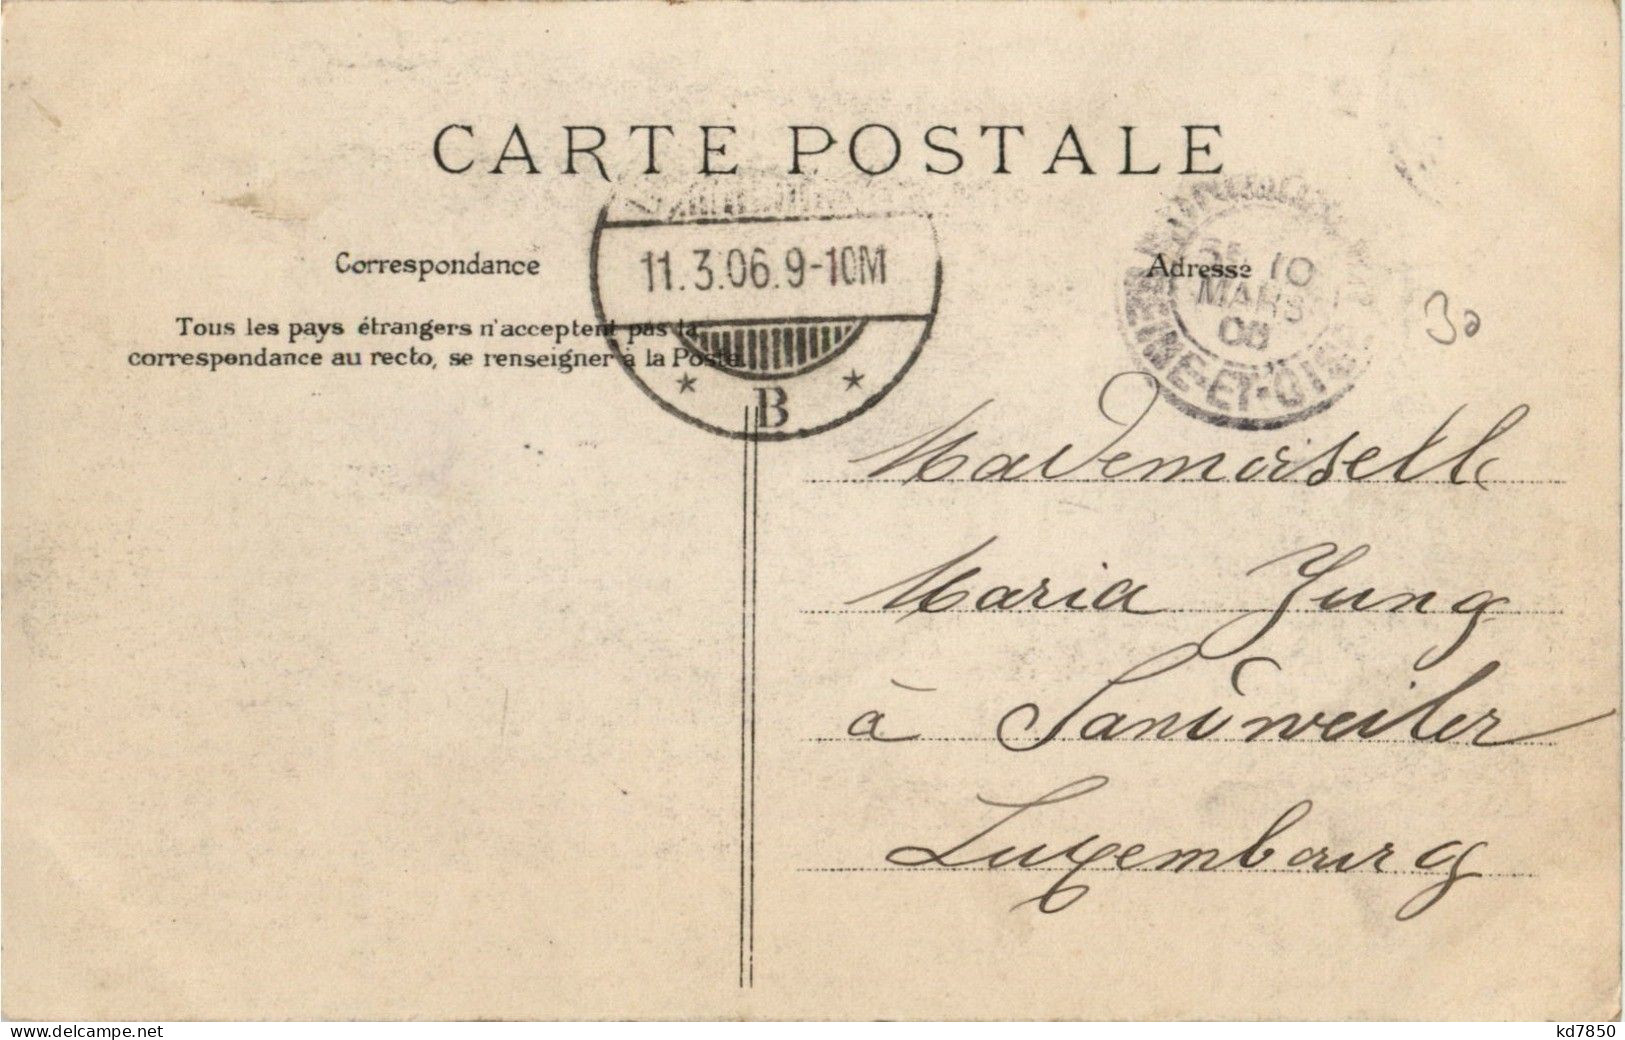 CARTE POSTALE
Correspondance
Adresse
Tous les pays étrangers n'acceptent pas la
correspondance au recto, se renseigner à la Poste.
11.3.06.9-10M
B
10
MARS
06
SEINE-ET-OISE
30
Mademoiselle
Maria Jung
à Sandweiler
Luxembourg
www.delcampe.net
kd7850